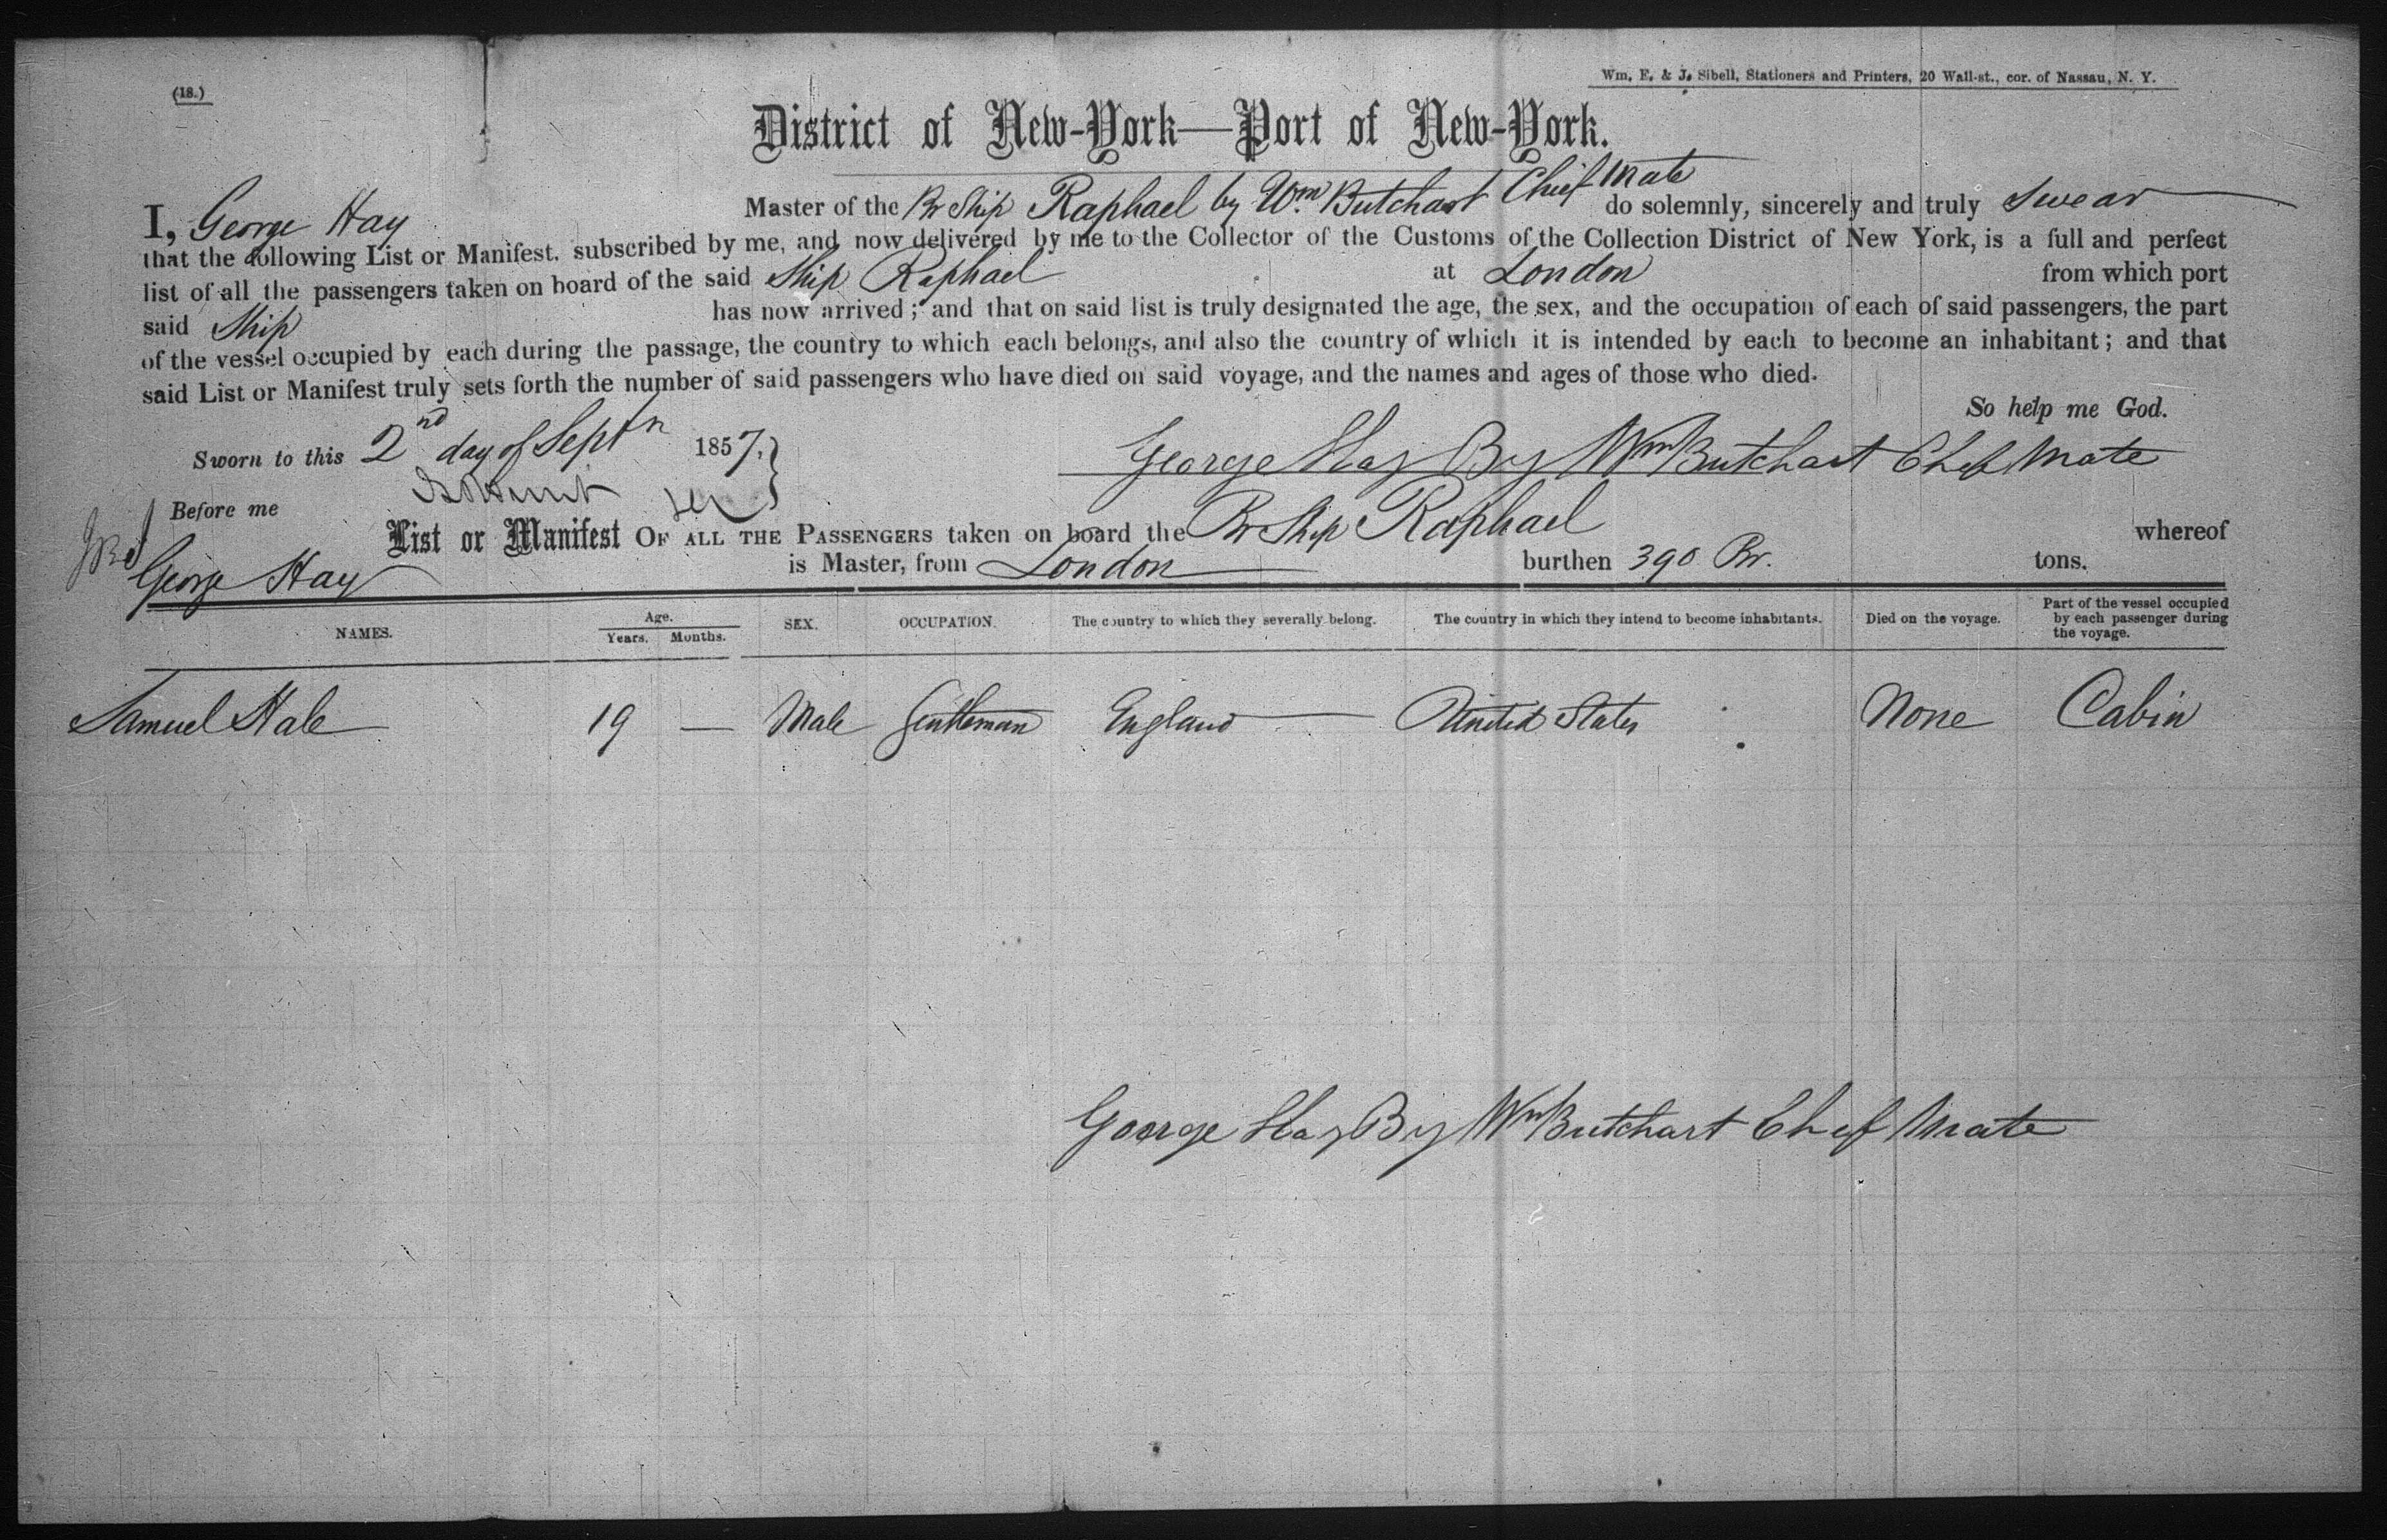 (18.)
Wm. E. & J. Sibell, Stationers and Printers, 20 Wall-st., cor. of Nassau, N. Y.
District of New-York—Port of New-York.
I, George Hay Master of the Br Ship Raphael by Wm Butchart Chief Mate do solemnly, sincerely and truly Swear
that the following List or Manifest, subscribed by me, and now delivered by me to the Collector of the Customs of the Collection District of New York, is a full and perfect
list of all the passengers taken on board of the said Ship Raphael at London from which port
said Ship has now arrived; and that on said list is truly designated the age, the sex, and the occupation of each of said passengers, the part
of the vessel occupied by each during the passage, the country to which each belongs, and also the country of which it is intended by each to become an inhabitant; and that
said List or Manifest truly sets forth the number of said passengers who have died on said voyage, and the names and ages of those who died.
So help me God.
Sworn to this 2nd day of Septr 1857,
George Hay By Wm Butchart Chef Mate
Before me
List or Manifest OF ALL THE PASSENGERS taken on board the Br Ship Raphael whereof
George Hay is Master, from London burthen 390 Br. tons.
NAMES. Age. Years. Months. SEX. OCCUPATION. The country to which they severally belong. The country in which they intend to become inhabitants. Died on the voyage. Part of the vessel occupied by each passenger during the voyage.
Samuel Hale 19 — Male Gentleman England United States None Cabin
George Hay By Wm Butchart Chef Mate